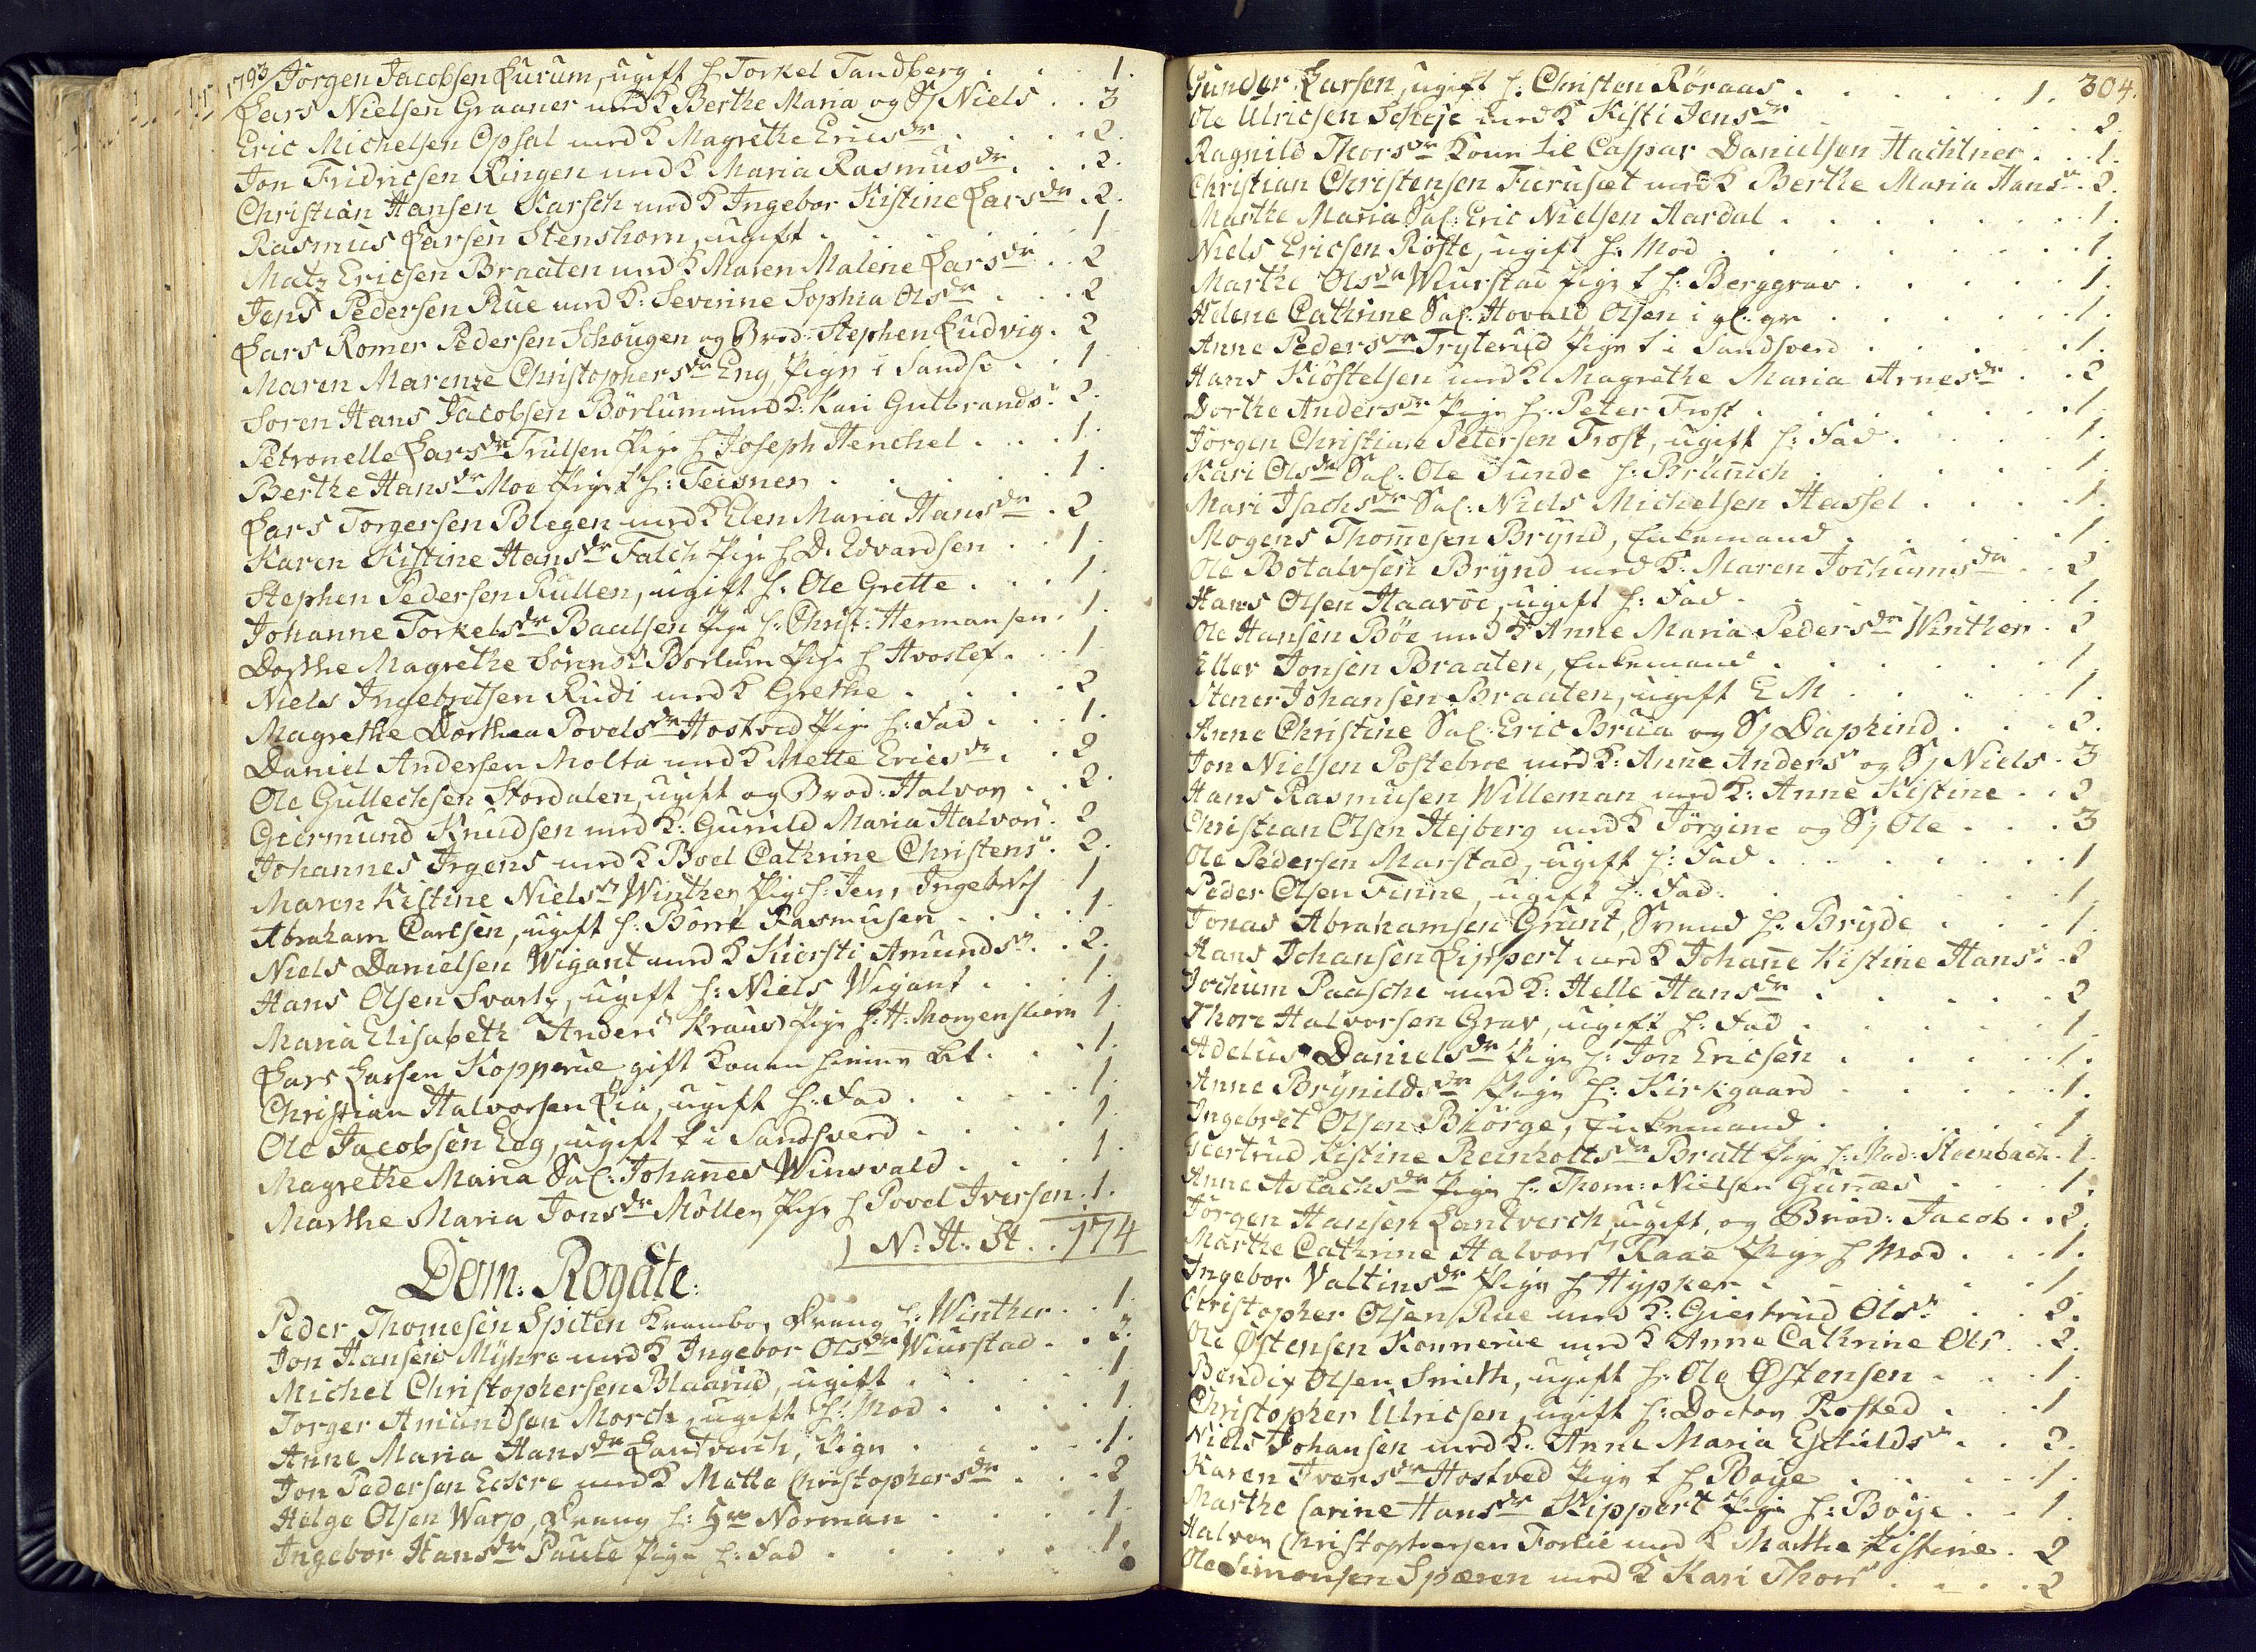 1793/ Jörgen Jacobsen Lurum, ugift h Torkel Tandberg . . . 1.
Lars Nielsen Graaner med K Berthe Maria og Sj Niels . . 3
Eric Michelsen Opsal med K Magrethe Erics dr . . . 2.
Jon Fridricsen Ringen med K Maria Rasmus dr . . . 2.
Christian Hansen Karsch med K Ingebor Kistine Lars dr . 2.
Rasmus Larsen Stenshorn, ugift . . . 1
Matz Ericsen Braaten med K Maren Malene Lars dr . . 2
Jens Pedersen Rue med K: Severine Sophia Ols dr . . . 2
Lars Romer Pedersen Schougen og Brod: Stephen Ludvig . 2
Maren Marenze Christophers dr Eng, Pige i Sandsv . . 1
Soren Hans Jacobsen Börlum med K: Kari Gulbrands dr . 2.
Petronelle Lars dr Trulsen Pige h Joseph Henchel . . . 1.
Berthe Hans dr Moe Pige t h: Teisner . . . 1.
Lars Torgersen Blegen med K Elen Maria Hans dr . 2
Karen Kistine Hans dr Falch Pige h D. Edvardsen . . 1.
Stephen Pedersen Rullen, ugift h. Ole Grette . . . 1.
Johanne Torkels dr Baalsen Pige h: Christ: Hermansen . 1.
Dorthe Magrethe Sörens dr Borlum Pige h Hvoslef . . . 1
Niels Ingebretsen Rudi med K Grethe . . . 2
Magrethe Dorthea Povels dr Hostved Pige h: Fad . . . 1.
Daniel Andersen Molta med K Mette Erics dr . . 2
Ole Gullechsen Stordalen, ugift og Brod: Halvor . . 2.
Giermund Knudsen med K: Gunild Maria Halvors dr . 2
Johannes Irgens med K Boel Cathrine Christens dr . 2.
Maren Kistine Niels dr Winther, Pige h: Jens Ingebrets . 1
Abraham Carlsen, ugift h: Börre Rasmusen . . . 1.
Niels Danielsen Wigant med K Kiersti Amunds dr . . 2.
Hans Olsen Svartz, ugift h: Niels Wigant . . . 1.
Maria Elisabeth Anders dr Kraus Pige h: H: Morgenstiern 1.
Lars Larsen Kopperue gift Konen hiemme . . . 1.
Christian Halvorsen Lia, ugift h: Fad . . . 1.
Ole Jacobsen Eeg, ugift t i Sandsverd . . . 1.
Magrethe Maria Sal: Johannes Winsvald . . . 1.
Marthe Maria Jons dr Möller Pige h Povel Iversen . 1.
N: H: St. . . 174
Dom: Rogate:
Peder Thomesen Spiten Krambod Dreng h: Winther . . 1.
Jon Hansen Myhre med K Ingebor Ols dr Wiurstad . . 2.
Michel Christophersen Blaarud, ugift . . . 1
Torger Amundsen Morch, ugift h: Mod . . . 1.
Anne Maria Hans dr Lantverch, Pige . . . 1.
Jon Pedersen Eckre med K Mette Christophers dr . . . 2
Helge Olsen Warp, Dreng h: Hr Norman . . . 1.
Ingebor Hans dr Paule Pige h: Fad . . . 1.
304.
Gunder Larsen, ugift h: Christen Röraas . . . 1.
Ole Ulricsen Scheje med K Kisti Jens dr . . . 2.
Ragnild Thors dr Kone til Caspar Danielsen Hachlner . . 1.
Christian Christensen Furuset med K Berthe Maria Hans dr . 2.
Marthe Maria Sal: Eric Nielsen Aardal . . . 1.
Niels Ericsen Röste, ugift h: Mod . . . 1.
Marthe Ols dr Wiurstad Pige t h: Berggrav . . . 1.
Helene Cathrine Sal: Hovald Olsen i gl: gr . . . 1.
Anne Peders dr Tryterud Pige t i Sandsverd . . . 1.
Hans Kiöstelsen med K Magrethe Maria Arnes dr . . 2
Dorthe Anders dr Pige h: Peter Frost . . . 1.
Jörgen Christian Petersen Frost, ugift h: Fad . . . 1.
Kari Ols dr Sal: Ole Sunde h: Brünnich . . . 1.
Mari Isachs dr Sal: Niels Michelsen Hassel . . . 1.
Mogens Thomesen Brynd, Enkemand . . . 1.
Ole Botalvsen Brynd med K: Maren Jochums dr . . 2
Hans Olsen Haavöe, ugift h: Fad . . . 1.
Ole Hansen Böe med K Anne Maria Peders dr Winther . 2
Eller Jonsen Braaten, Enkemand . . . 1.
Stener Johansen Braaten, ugift E M . . . 1.
Anne Christine Sal: Eric Brua og Sj Daphind . . . 2.
Jon Nielsen Postebroe med K: Anne Anders dr og Sj Niels . 3
Hans Rasmusen Willeman med K: Anne Kistine . . 2
Christian Olsen Hejberg med K Jörgine og Sj Ole . . . 3
Ole Pedersen Marstad, ugift h: Fad . . . 1
Peder Olsen Finne, ugift h: Fad . . . 1.
Jonas Abrahamsen Grant, Svend h: Bryde . . . 1.
Hans Johansen Lippert med K Johane Kistine Hans dr . 2
Jochum Paasche med K: Helle Hans dr . . . 2
Thore Halvorsen Grav, ugift h: Fad . . . 1.
Adelus Daniels dr Pige h: Jon Ericsen . . . 1.
Anne Brynilds dr Pige h: Kirkgaard . . . 1.
Ingebret Olsen Biörge, Enkemand . . . 1.
Giertrud Kistine Reinholtts dr Bratt Pige h: Mad: Steenbach . 1.
Anne Aslachs dr Pige h: Thom: Nielsen Gunnæs . . . 1.
Jörgen Hansen Lantverch, ugift, og Brod: Jacob . . 2.
Marthe Cathrine Halvors dr Raae Pige h Mod . . . 1.
Ingebor Valtins dr Pige h Hypker . . . 1.
Christopher Olsen Rue med K: Giertrud Ols dr . . 2.
Ole Östensen Konnerue med K Anne Cathrine Ols . . 2.
Bendix Olsen Smith, ugift h: Ole Östensen . . . 1.
Christopher Ulricsen, ugift h: Doctor Rosted . . . 1
Niels Johansen med K: Anne Maria Eschilds dr . . 2.
Karen Ivers dr Hostved Pige t h Boye . . . 1.
Marthe Carine Hans dr Kippert Pige h: Boye . . 1.
Halvor Christophersen Forlie med K Marthe Kistine . 2
Ole Simensen Spæren med K Kari Thors dr . . . 2